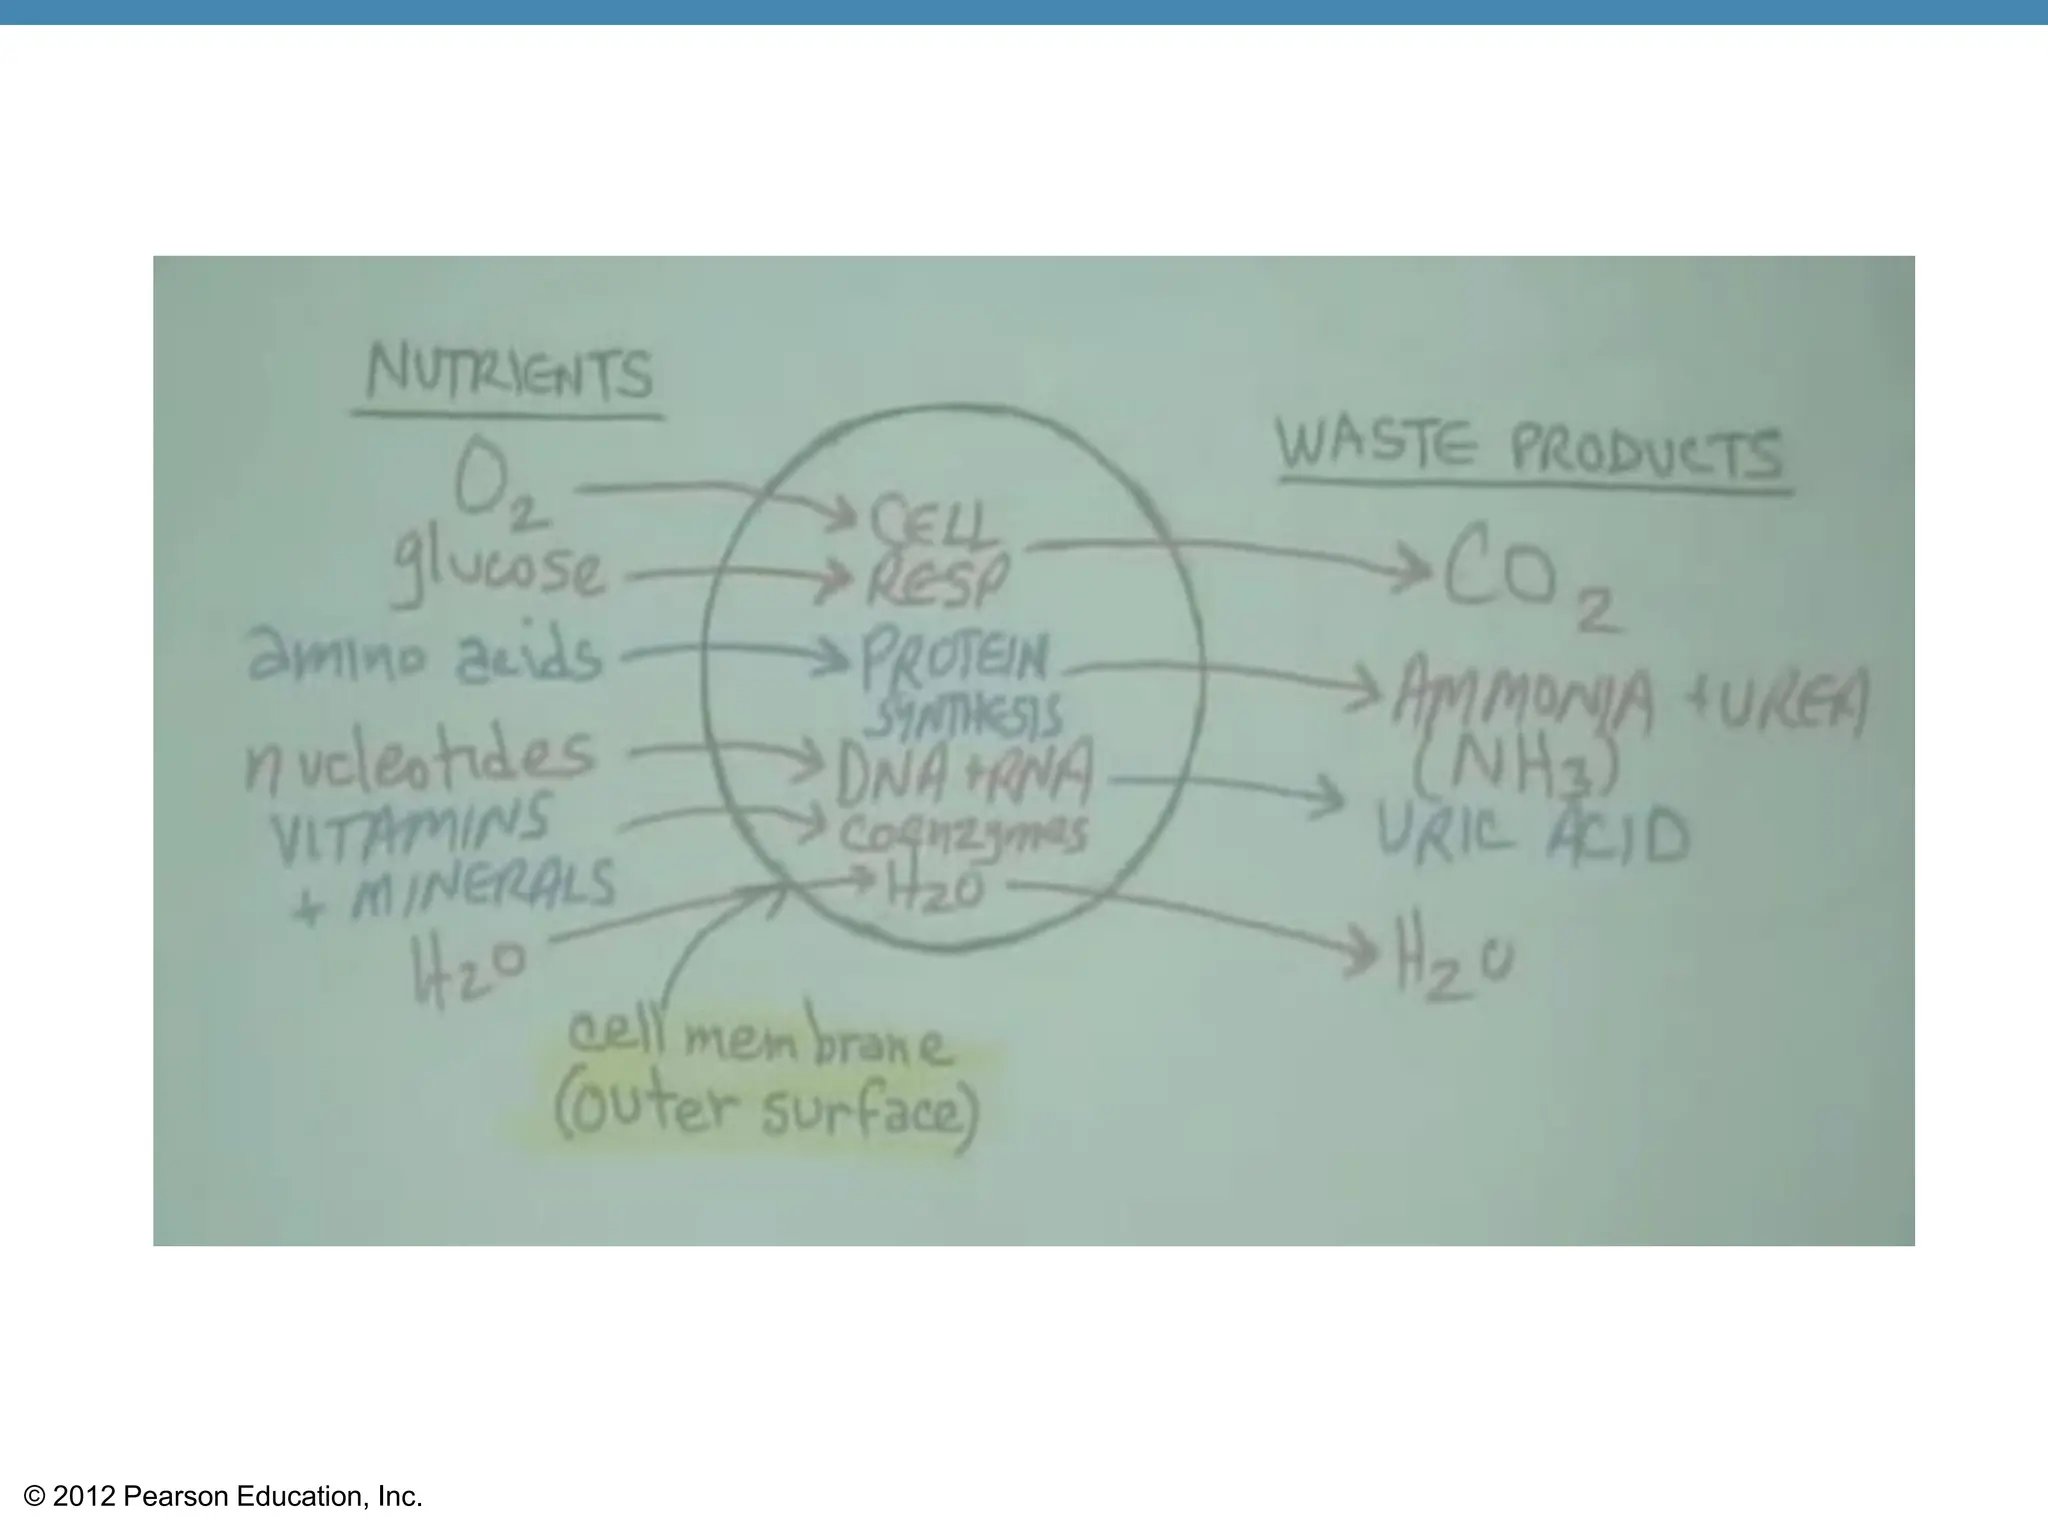 NUTRIENTS
O2
glucose
amino acids
nucleotides
VITAMINS
+ MINERALS
H2O
CELL
RESP
PROTEIN
SYNTHESIS
DNA + RNA
coenzymes
H2O
cell membrane
(outer surface)
WASTE PRODUCTS
CO2
AMMONIA + UREA
(NH3)
URIC ACID
H2O
© 2012 Pearson Education, Inc.